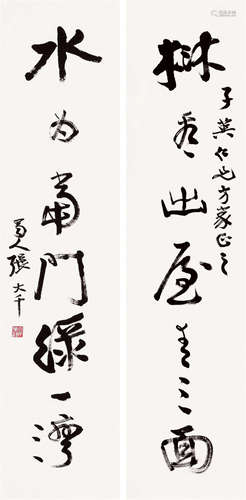 樹看出屋青三面
子英仁兄方家正之
水為當門綠一灣
蜀人張大千